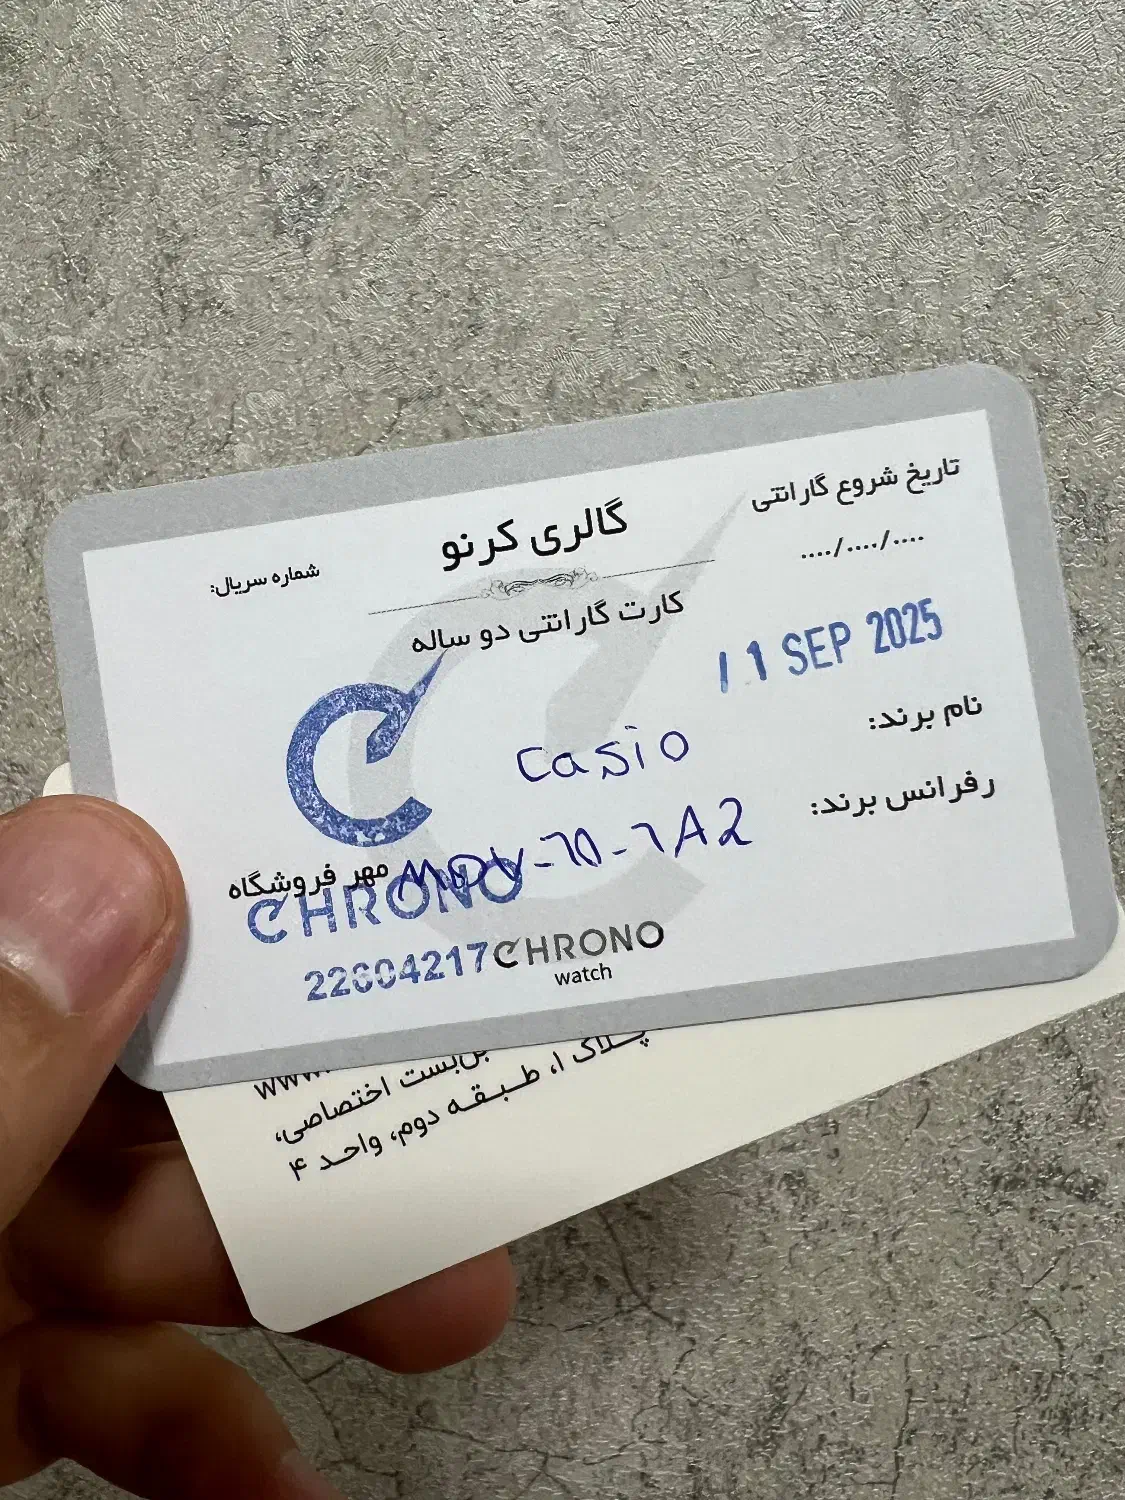 تاریخ شروع گارانتی
..../..../....
گالری کرنو
شماره سریال:
کارت گارانتی دو ساله
1 SEP 2025
نام برند:
Casio
رفرانس برند:
1A2
مهر فروشگاه
CHRONO
22604217
CHRONO
watch
www.
بن‌بست اختصاصی،
پلاک ۱، طبقه دوم، واحد ۴